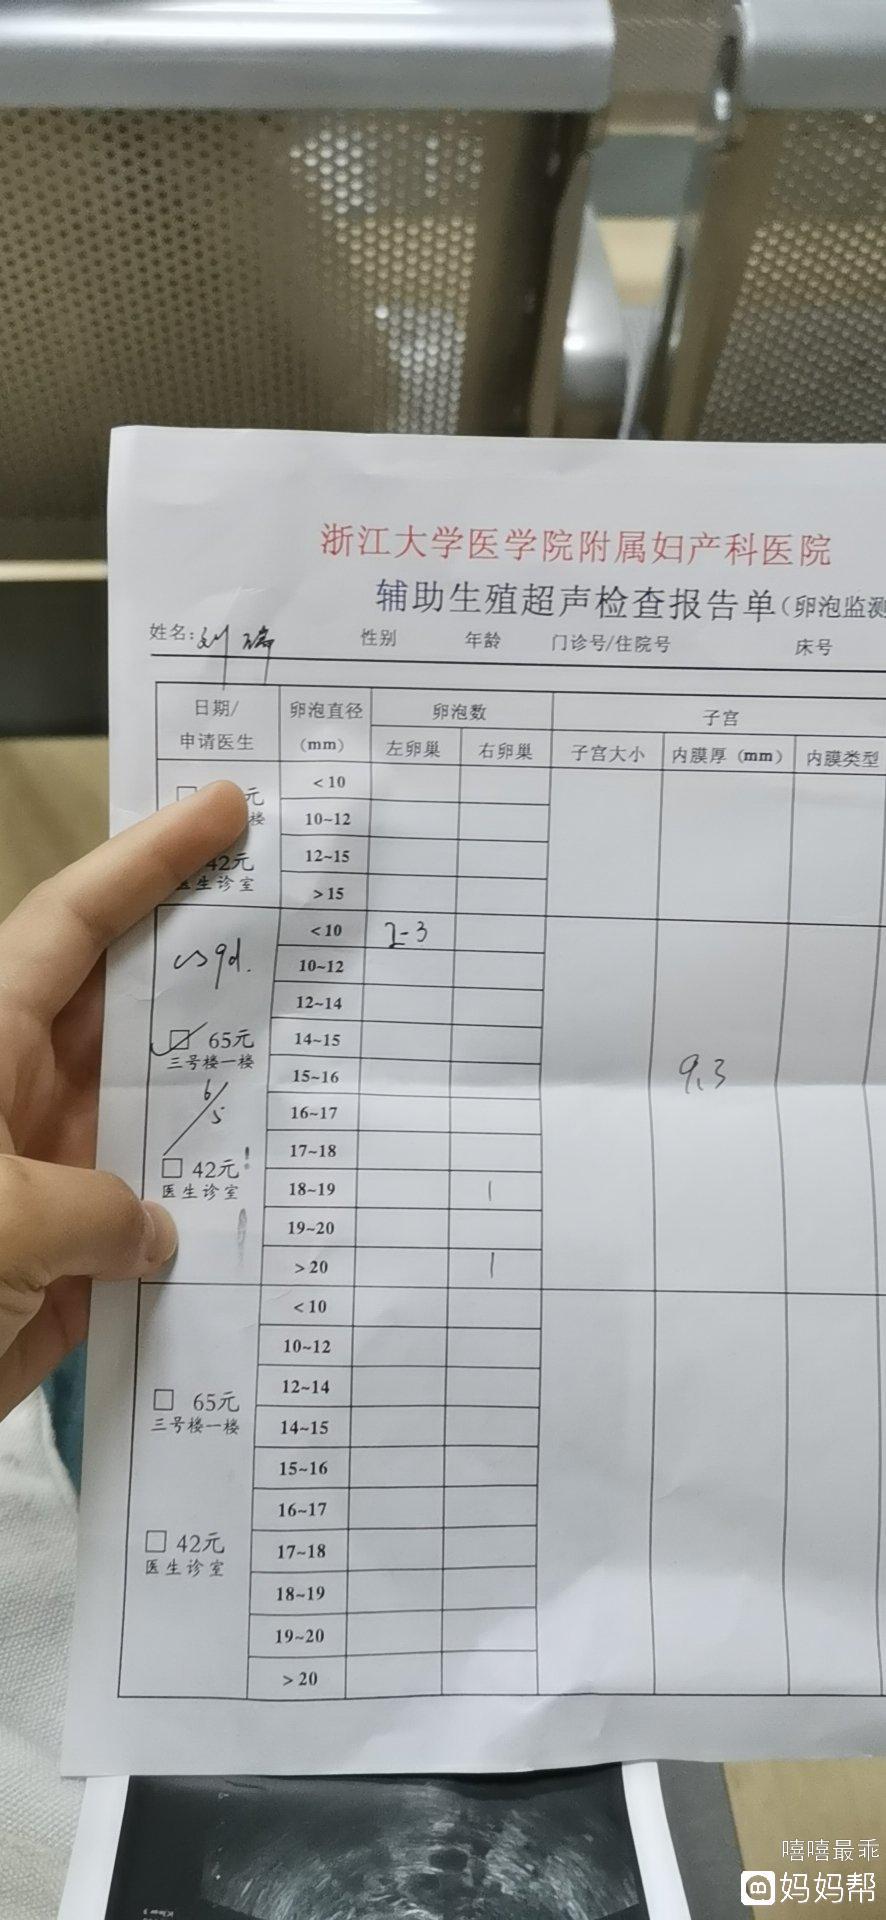 浙江大学医学院附属妇产科医院
辅助生殖超声检查报告单(卵泡监测
姓名: 性别 年龄 门诊号/住院号 床号
日期/ 申请医生 卵泡直径 (mm) 卵泡数 子宫
左卵巢 右卵巢 子宫大小 内膜厚 (mm) 内膜类型
元 <10
楼 10~12
42元 12~15
医生诊室 >15
<10 2-3
10~12
12~14
65元 14~15
三号楼一楼 15~16 9.3
6/5 16~17
17~18
42元 18~19 1
医生诊室 19~20
>20 1
<10
10~12
65元 12~14
三号楼一楼 14~15
15~16
16~17
42元 17~18
医生诊室 18~19
19~20
>20
嘻嘻最乖
妈妈帮